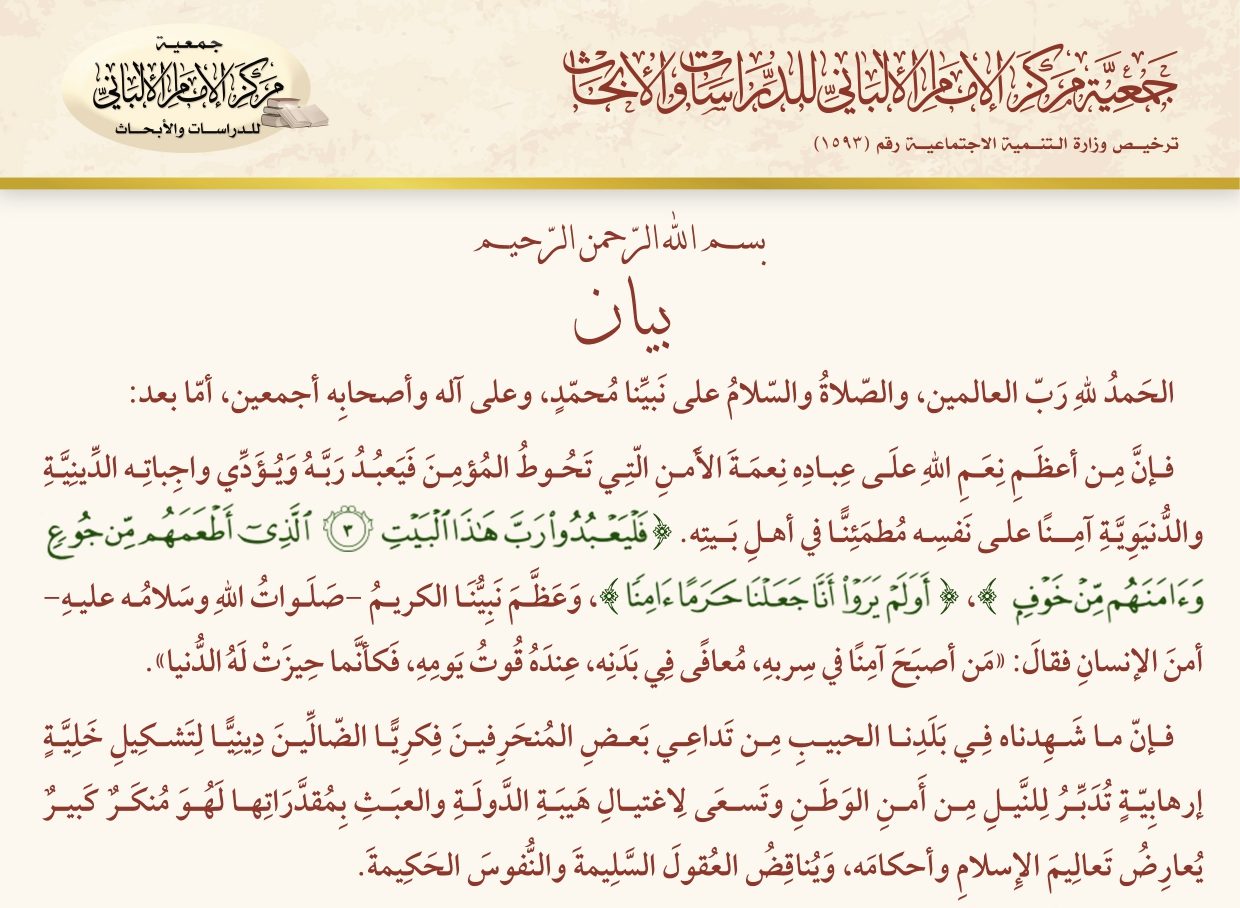 جمعية
مركز الإمام الألباني
للدراسات والأبحاث
جَمعِيَّة مَركَز الإمَام الألبَانيِّ للدِّرَاسَات والأبحَاث
ترخيص وزارة التنمية الاجتماعية رقم (١٥٩٣)
بسم الله الرّحمن الرّحيم
بيان
الحَمدُ للهِ رَبّ العالمين، والصّلاةُ والسّلامُ على نَبيِّنا مُحمّدٍ، وعلى آله وأصحابِه أجمعين، أمّا بعد:
فإنَّ مِن أعظَمِ نِعَمِ اللهِ علَى عِبادِه نِعمَةَ الأَمنِ الّتِي تَحُوطُ المُؤمِنَ فَيَعبُدُ رَبَّهُ وَيُؤَدِّي واجِباتِه الدِّينِيَّةِ
والدُّنيَوِيَّةِ آمِنًا على نَفسِه مُطمَئِنًّا في أهلِ بَيتِه. ﴿فَلْيَعْبُدُوا۟ رَبَّ هَٰذَا ٱلْبَيْتِ ٣ ٱلَّذِىٓ أَطْعَمَهُم مِّن جُوعٍ
وَءَامَنَهُم مِّنْ خَوْفٍۭ﴾، ﴿أَوَلَمْ يَرَوْا۟ أَنَّا جَعَلْنَا حَرَمًا ءَامِنًا﴾، وَعَظَّمَ نَبِيُّنَا الكريمُ –صَلَواتُ اللهِ وسَلامُه عليهِ–
أمنَ الإنسانِ فقالَ: «مَن أصبَحَ آمِنًا في سِربهِ، مُعافًى فِي بَدَنِه، عِندَهُ قُوتُ يَومِهِ، فَكأنَّما حِيزَتْ لَهُ الدُّنيا».
فإنّ ما شَهِدناه فِي بَلَدِنا الحبيبِ مِن تَداعِي بَعضِ المُنحَرِفينَ فِكرِيًّا الضّالِّينَ دِينِيًّا لِتَشكِيلِ خَلِيَّةٍ
إرهابِيّةٍ تُدَبِّرُ لِلنَّيلِ مِن أَمنِ الوَطَنِ وتَسعَى لِاغتيالِ هَيبَةِ الدَّولَةِ والعبَثِ بِمُقدَّرَاتِها لَهُوَ مُنكَرٌ كَبيرٌ
يُعارِضُ تَعالِيمَ الإسلامِ وأحكامَه، وَيُناقِضُ العُقولَ السَّلِيمةَ والنُّفوسَ الحَكِيمةَ.